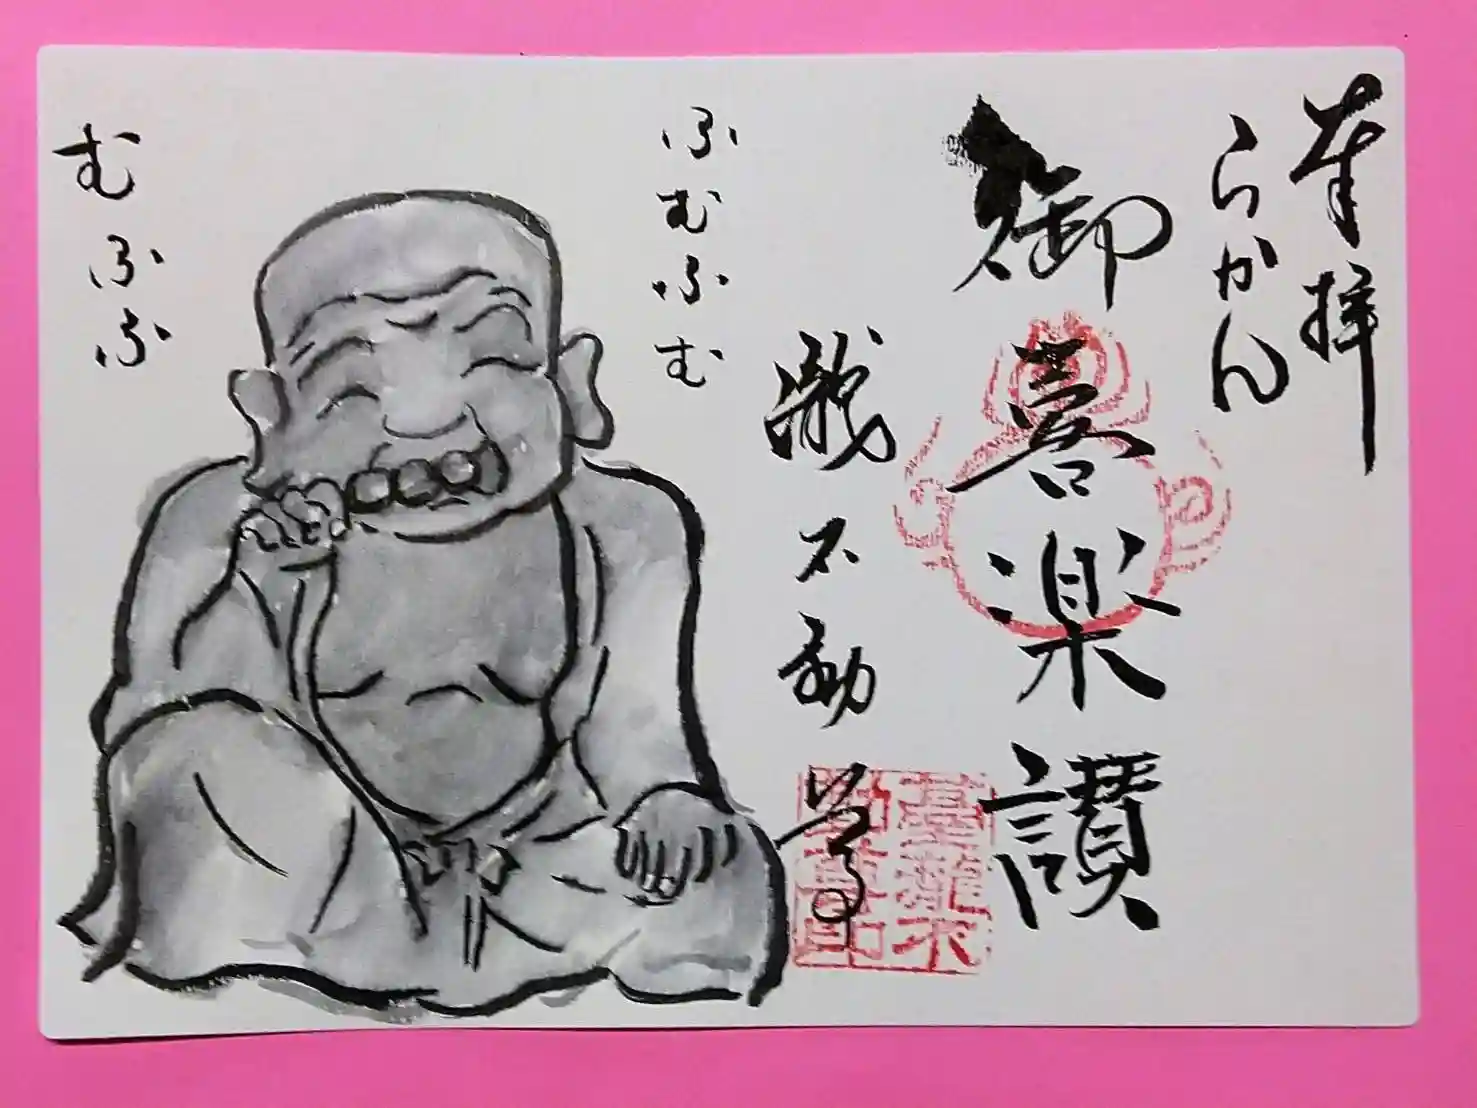 奉拝
らかん
御喜楽讃
瀧不動尊
ふむふむ
むふふ